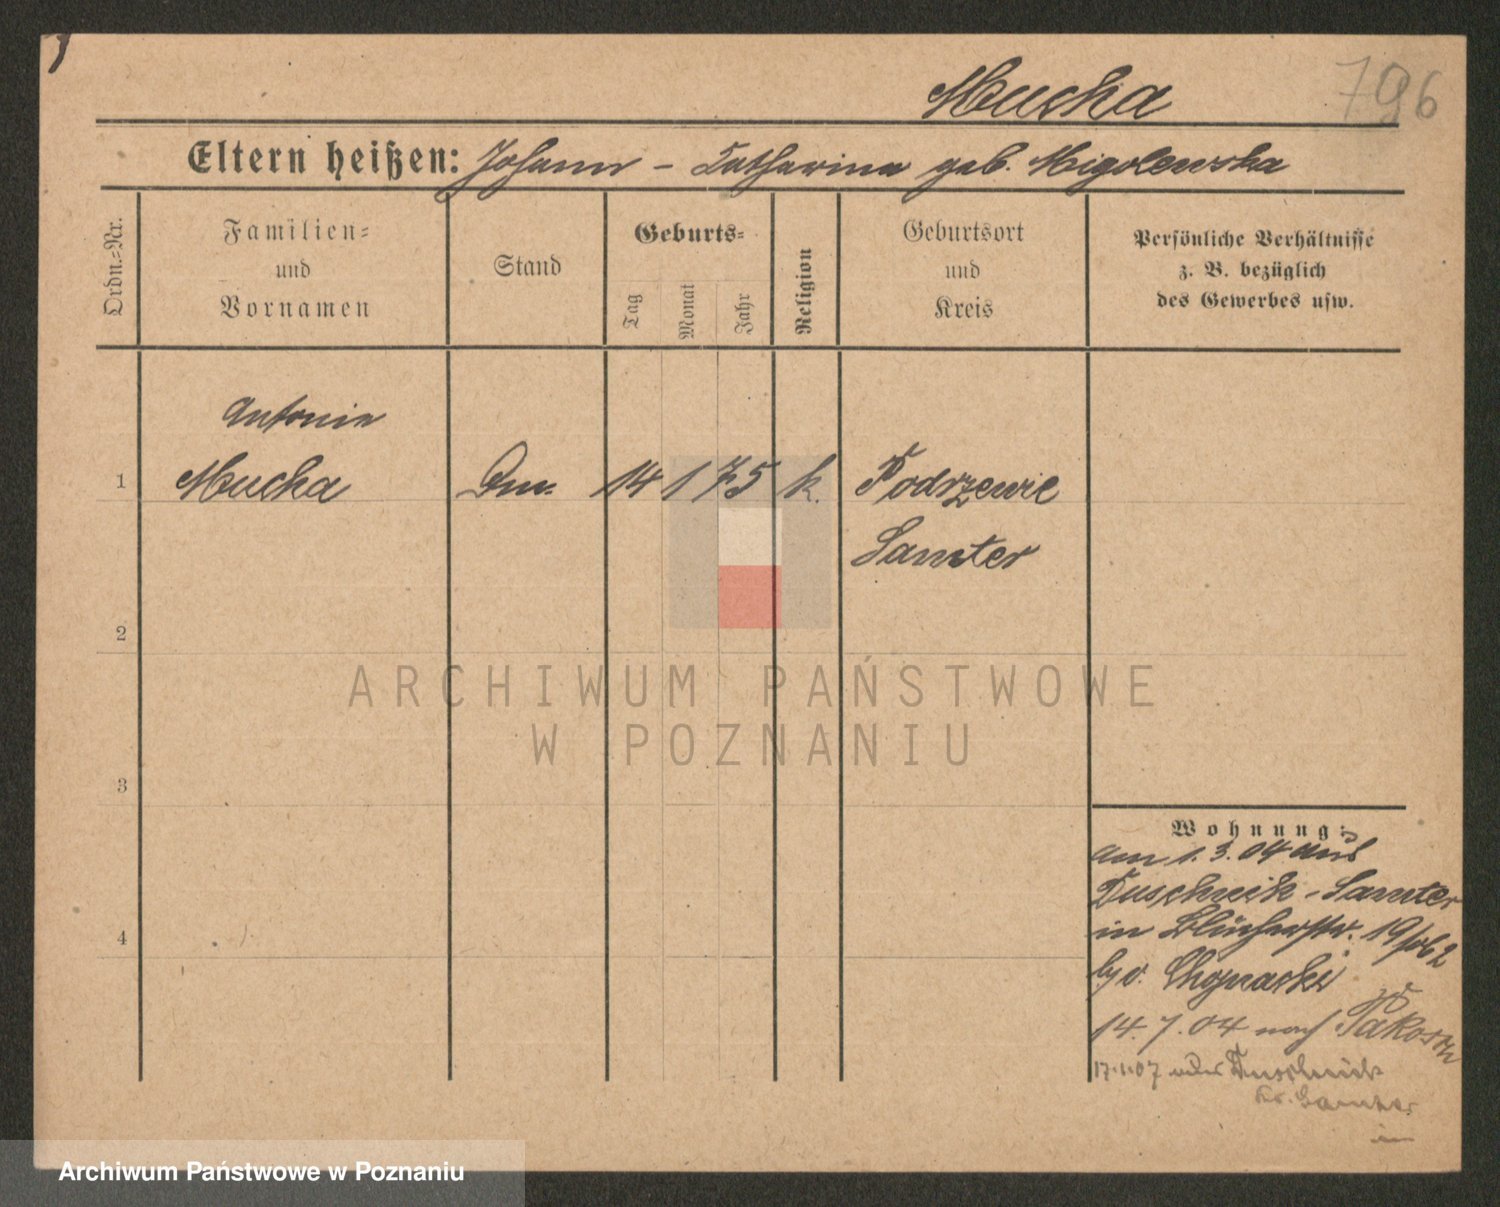 Mucha
796
Eltern heißen: Johann - Catharina geb. Migolewska
Ordn.-Nr.
Familien-
und
Vornamen
Stand
Geburts-
Tag
Monat
Jahr
Religion
Geburtsort
und
Kreis
Persönliche Verhältnisse
z. B. bezüglich
des Gewerbes usw.
Antonie
1 Mucha 14 1 75 k. Podrzewie
Samter
2
3
4
Wohnung:
am 1.3.04 aus
Duschnik - Samter
in Blücherstr. 19
b/ v. Chojnacki
14.7.04 nach Pakosch
17.1.07 Duschnik
Kr. Samter
in
ARCHIWUM PAŃSTWOWE
W POZNANIU
Archiwum Państwowe w Poznaniu